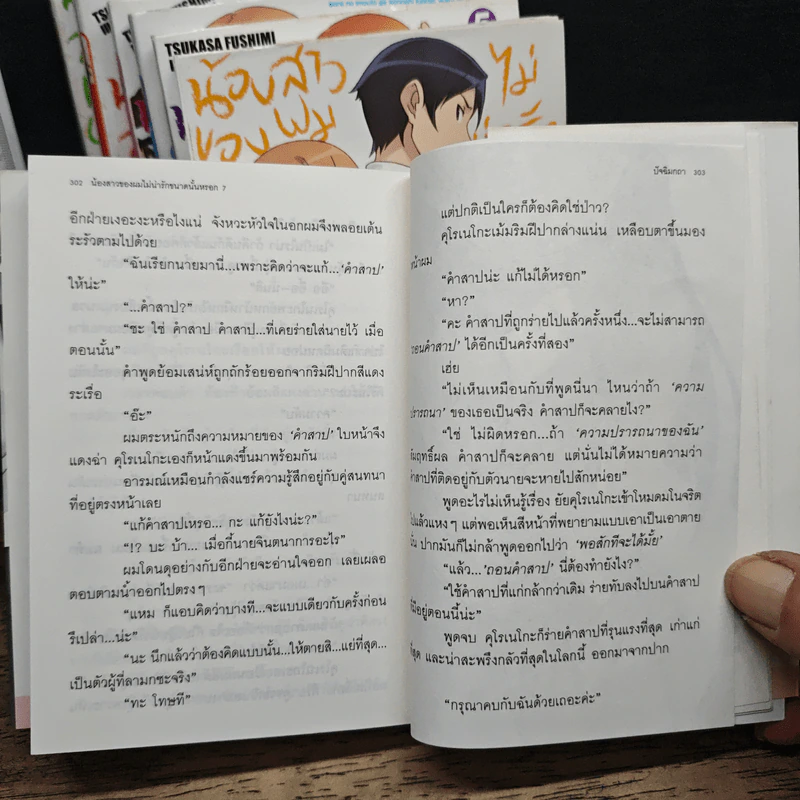 TSUKASA FUSHIMI
TSUKASA FUSHIMI
5
น้องสาว
ของผม
ไม่
302 น้องสาวของผมไม่น่ารักขนาดนั้นหรอก 7
อีกฝ่ายเงอะงะหรือไงแน่ จังหวะหัวใจในอกผมจึงพลอยเต้น
ระรัวตามไปด้วย
“ฉันเรียกนายมานี่...เพราะคิดว่าจะแก้...‘คำสาป’
ให้น่ะ”
“...คำสาป?”
“ซะ ใช่ คำสาป คำสาป...ที่เคยร่ายใส่นายไว้ เมื่อ
ตอนนั้น”
คำพูดย้อมเสน่ห์ถูกถักร้อยออกจากริมฝีปากสีแดง
ระเรื่อ
“อ๊ะ”
ผมตระหนักถึงความหมายของ ‘คำสาป’ ใบหน้าจึง
แดงฉ่า คุโรเนโกะเองก็หน้าแดงขึ้นมาพร้อมกัน
อารมณ์เหมือนกำลังแชร์ความรู้สึกอยู่กับคู่สนทนา
ที่อยู่ตรงหน้าเลย
“แก้คำสาปเหรอ... กะ แก้ยังไงน่ะ?”
“!? บะ บ้า... เมื่อกี้นายจินตนาการอะไร”
ผมโดนดุอย่างกับอีกฝ่ายจะอ่านใจออก เลยเผลอ
ตอบตามน้ำออกไปตรงๆ
“แหม ก็แอบคิดว่าบางที...จะแบบเดียวกับครั้งก่อน
รึเปล่า...น่ะ”
“นะ นึกแล้วว่าต้องคิดแบบนั้น...ให้ตายสิ...แย่ที่สุด...
เป็นตัวผู้ที่ลามกซะจริง”
“ทะ โทษที”
ปัจฉิมกถา 303
แต่ปกติเป็นใครก็ต้องคิดใช่ป่าว?
คุโรเนโกะเม้มริมฝีปากล่างแน่น เหลือบตาขึ้นมอง
หน้าผม
“คำสาปน่ะ แก้ไม่ได้หรอก”
“หา?”
“คะ คำสาปที่ถูกร่ายไปแล้วครั้งหนึ่ง...จะไม่สามารถ
‘ถอนคำสาป’ ได้อีกเป็นครั้งที่สอง”
เฮ่ย
“ไม่เห็นเหมือนกับที่พูดนี่นา ไหนว่าถ้า ‘ความ
ปรารถนา’ ของเธอเป็นจริง คำสาปก็จะคลายไง?”
“ใช่ ไม่ผิดหรอก...ถ้า ‘ความปรารถนาของฉัน’
สัมฤทธิ์ผล คำสาปก็จะคลาย แต่นั่นไม่ได้หมายความว่า
คำสาปที่ติดอยู่กับตัวนายจะหายไปสักหน่อย”
พูดอะไรไม่เห็นรู้เรื่อง ยัยคุโรเนโกะเข้าโหมดมโนจริต
ไปแล้วแหงๆ แต่พอเห็นสีหน้าที่พยายามแบบเอาเป็นเอาตาย
นั่น ปากมันก็ไม่กล้าพูดออกไปว่า ‘พอสักทีจะได้มั้ย’
“แล้ว...‘ถอนคำสาป’ นี่ต้องทำยังไง?”
“ใช้คำสาปที่แก่กล้ากว่าเดิม ร่ายทับลงไปบนคำสาป
ที่มีอยู่ตอนนี้น่ะ”
พูดจบ คุโรเนโกะก็ร่ายคำสาปที่รุนแรงที่สุด เก่าแก่
ที่สุด และน่าสะพรึงกลัวที่สุดในโลกนี้ ออกมาจากปาก
“กรุณาคบกับฉันด้วยเถอะค่ะ”